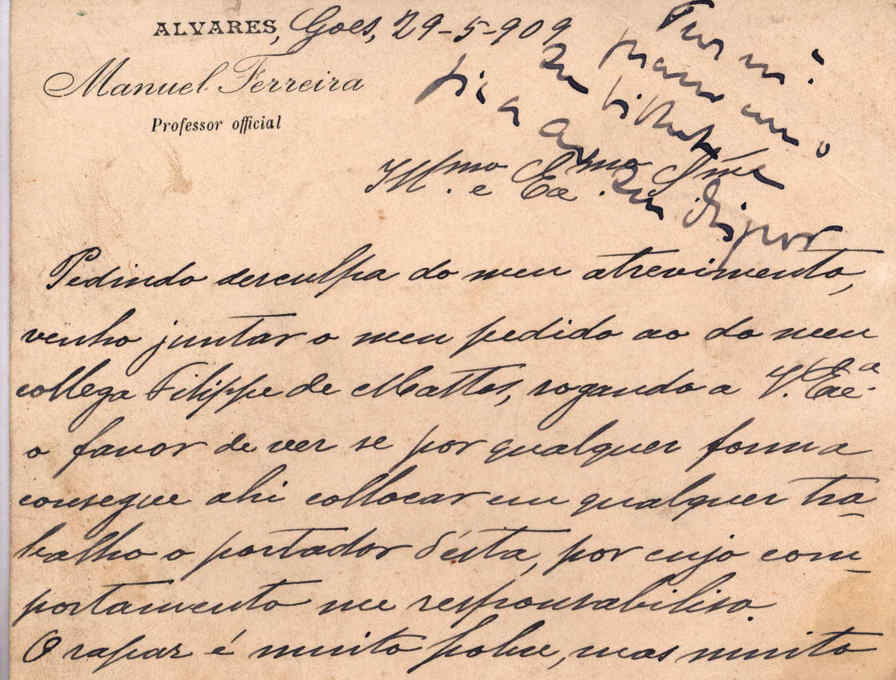 ALVARES, Goes, 29-5-909
Manuel Ferreira
Professor official
Ill.mo e Ex.mo Snr
dispor
Pedindo desculpa do meu atrevimento,
venho juntar o meu pedido ao do meu
collega Filippe de Mattos, rogando a V. Ex.a
o favor de ver se por qualquer forma
consegue ahi collocar em qualquer tra-
balho o portador d'esta, por cujo com-
portamento me responsabiliso
O rapaz é muito pobre, mas muito